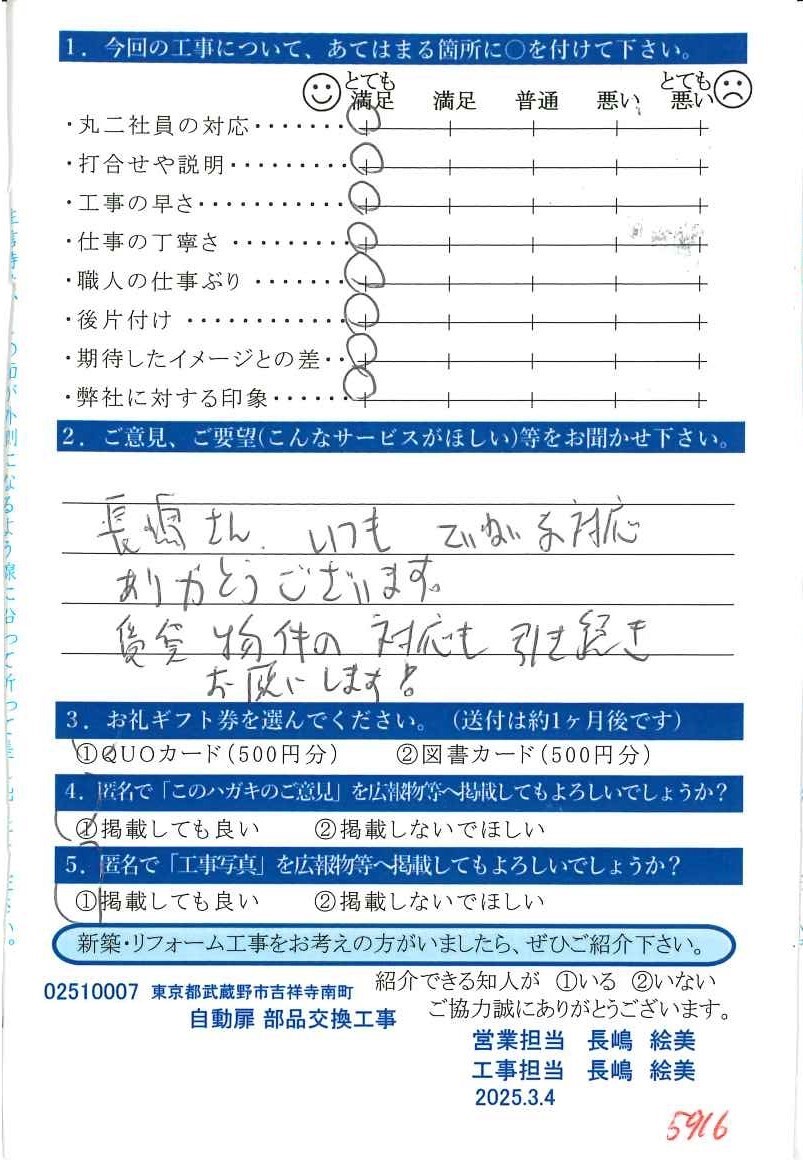 1. 今回の工事について、あてはまる箇所に○を付けて下さい。
とても満足 満足 普通 悪い とても悪い
・丸二社員の対応・・・・・・・
・打合せや説明・・・・・・・・・
・工事の早さ・・・・・・・・・・・
・仕事の丁寧さ・・・・・・・・・
・職人の仕事ぶり・・・・・・・
・後片付け・・・・・・・・・・・・
・期待したイメージとの差・・
・弊社に対する印象・・・・・・
2. ご意見、ご要望(こんなサービスがほしい)等をお聞かせ下さい。
長嶋さん、いつも ていねいな対応
ありがとうございます。
賃貸物件の対応も引き続き
お願いします!
3. お礼ギフト券を選んでください。(送付は約1ヶ月後です)
①QUOカード(500円分) ②図書カード(500円分)
4. 匿名で「このハガキのご意見」を広報物等へ掲載してもよろしいでしょうか?
①掲載しても良い ②掲載しないでほしい
5. 匿名で「工事写真」を広報物等へ掲載してもよろしいでしょうか?
①掲載しても良い ②掲載しないでほしい
新築・リフォーム工事をお考えの方がいましたら、ぜひご紹介下さい。
紹介できる知人が ①いる ②いない
02510007 東京都武蔵野市吉祥寺南町
ご協力誠にありがとうございます。
自動扉 部品交換工事
営業担当 長嶋 絵美
工事担当 長嶋 絵美
2025.3.4
5916